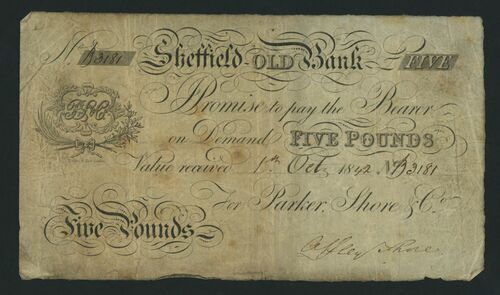 No B3181 Sheffield OLD Bank FIVE
I Promise to pay the Bearer
on Demand FIVE POUNDS
Value received 1st Oct 1842 No B3181
For Parker, Shore & Co
Five Pounds
Shore